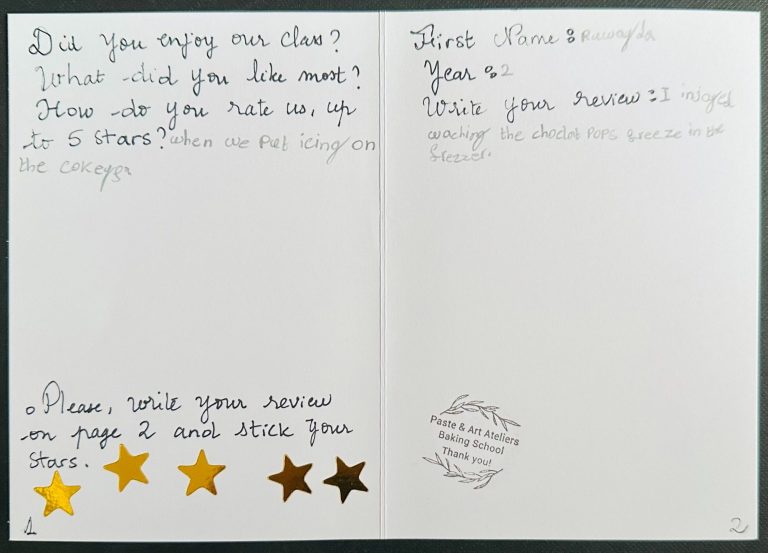 Did you enjoy our class?
What did you like most?
How do you rate us, up
to 5 stars? when we Put icing on
the
o Please, write your review
on page 2 and stick your
stars.
1
First Name : Ruwayda
Year : 2
Write your review : I injoyed
waching the choclot POPS freeze in the
frezzer.
Paste & Art Ateliers
Baking School
Thank you!
2